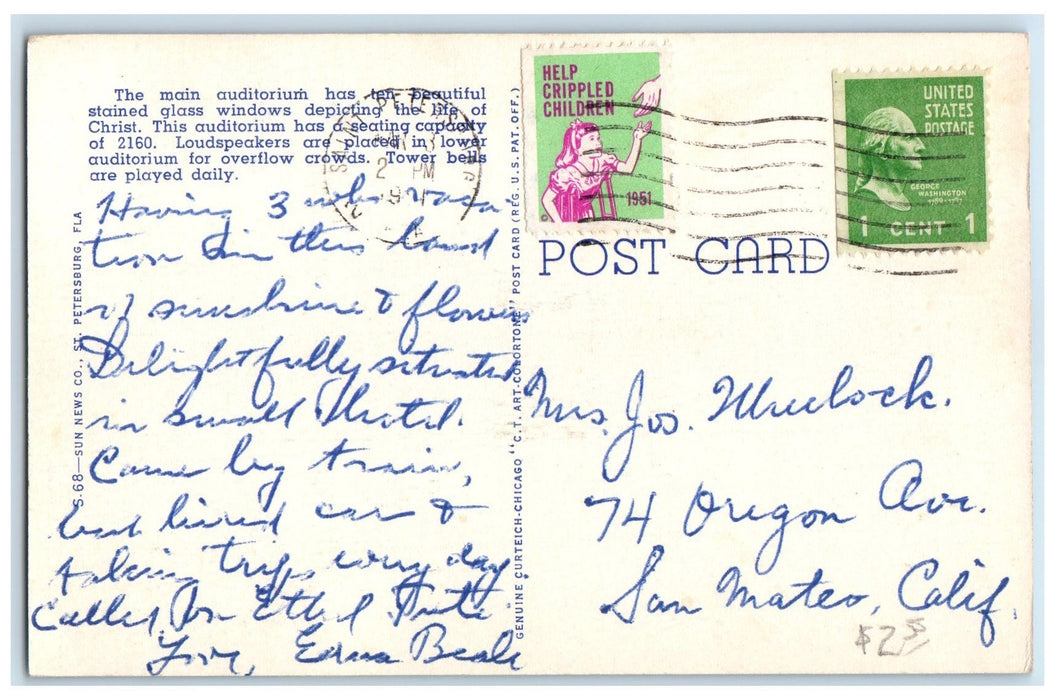 The main auditorium has ten beautiful
stained glass windows depicting the life of
Christ. This auditorium has a seating capacity
of 2160. Loudspeakers are placed in lower
auditorium for overflow crowds. Tower bells
are played daily.
Having 3 wks vaca
tion in this land
of sunshine & flowers
Delightfully situated
in small Hotel.
Came by train,
but hired car &
taking trips every day
Called on Ethel
Love, Edna Beale
S.68—SUN NEWS CO., ST. PETERSBURG, FLA
GENUINE CURTEICH-CHICAGO "C.T. ART-COLORTONE" POST CARD (REG. U.S. PAT. OFF.)
SAINT PETERSBURG
2 PM
HELP
CRIPPLED
CHILDREN
1951
UNITED
STATES
POSTAGE
GEORGE
WASHINGTON
1789-1797
1 CENT 1
POST CARD
Mrs. Jos.
74 Oregon Ave.
San Mateo, Calif.